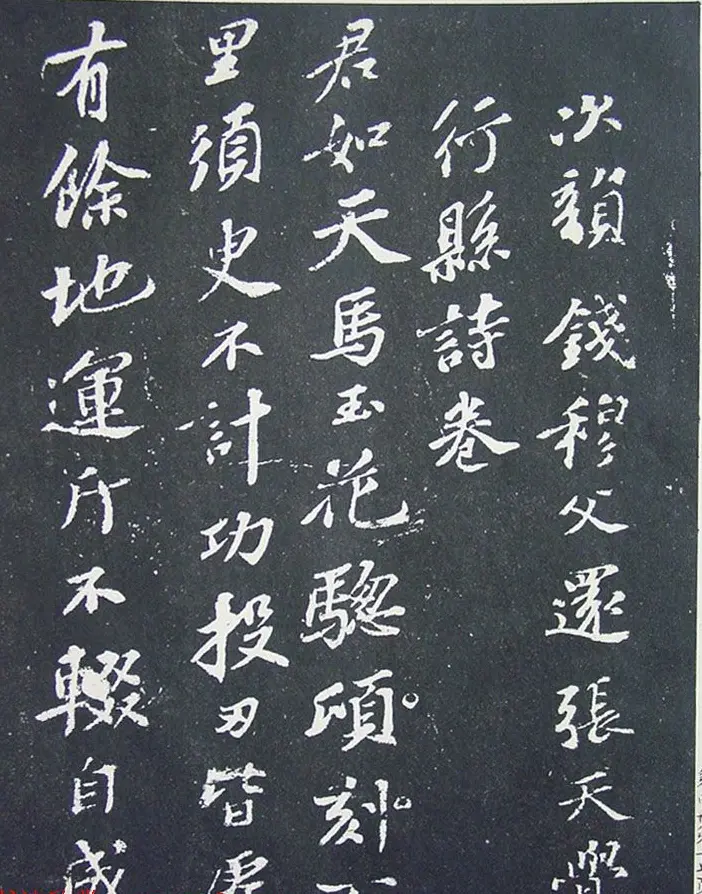 次韻錢穆父還張天覺
行縣詩卷
君如天馬玉花驄頃刻
里須臾不計功投刃皆虛
有餘地運斤不輟自成